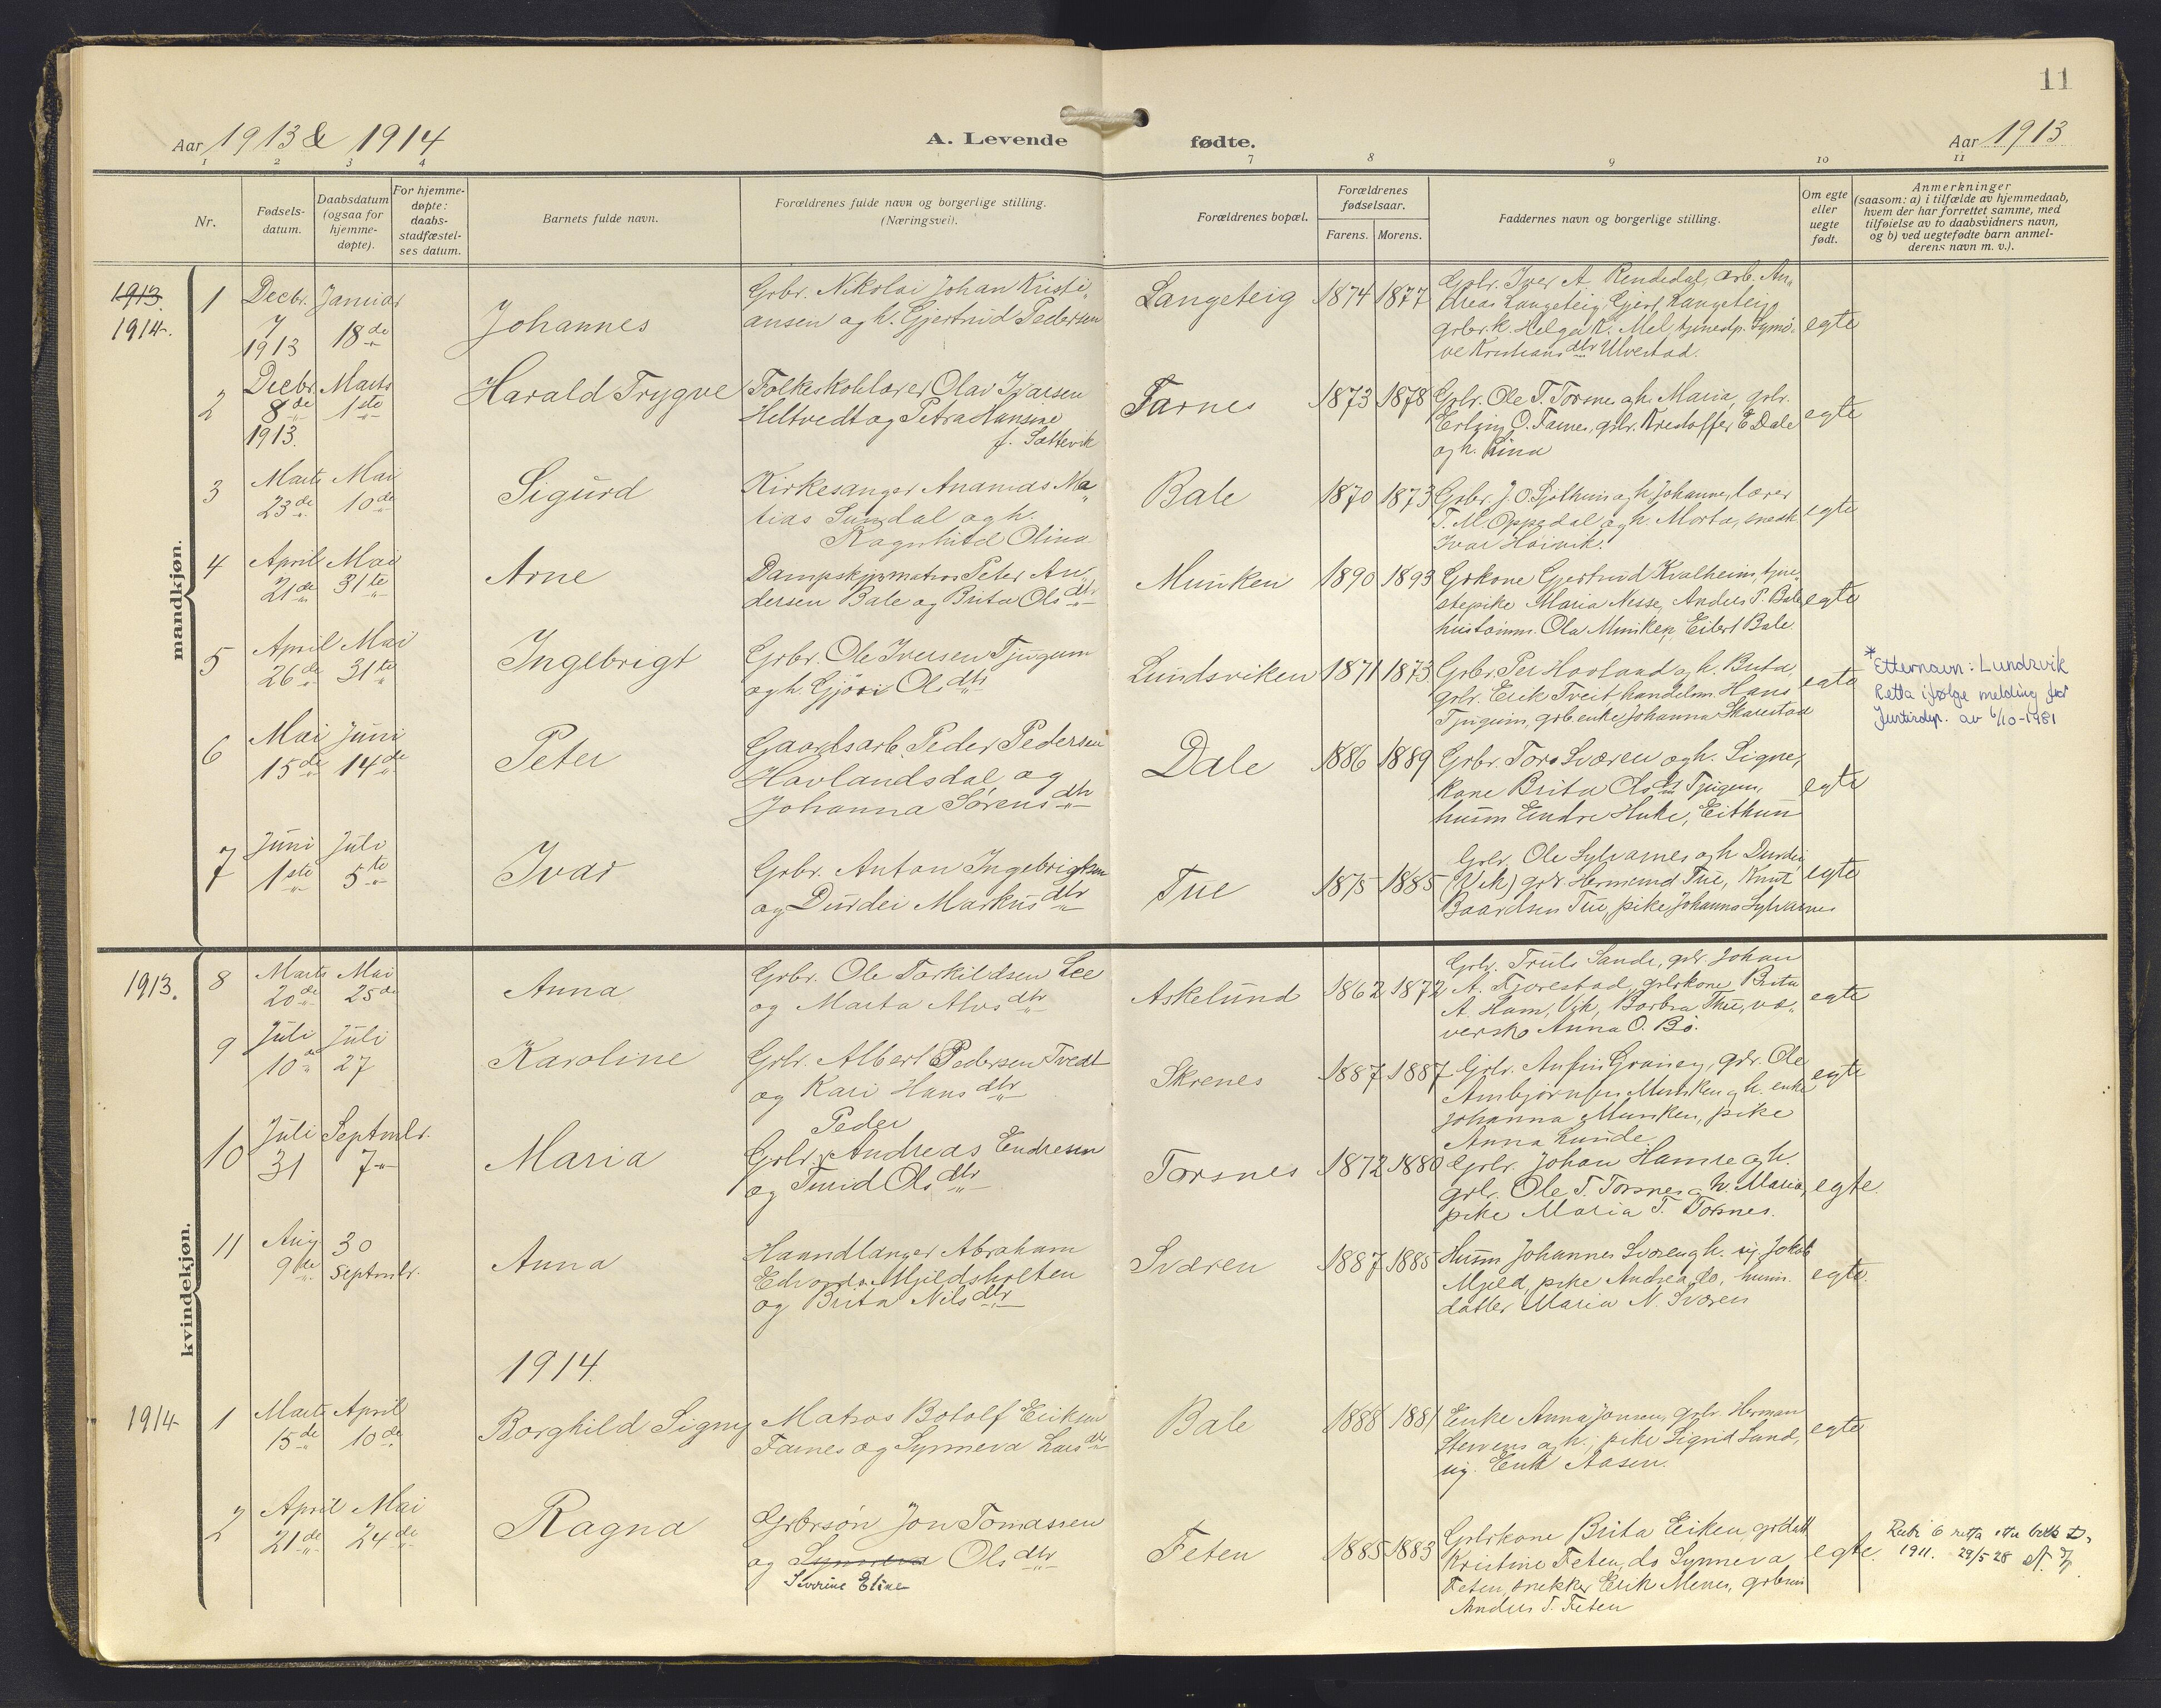 11
Aar 1913 & 1914
A. Levende fødte.
Aar 1913
1 2 3 4 7 8 9 10 11
Nr.
Fødsels-
datum.
Daabsdatum
(ogsaa for
hjemme-
døpte).
For hjemme-
døpte:
daabs-
stadfæstel-
ses datum.
Barnets fulde navn.
Forældrenes fulde navn og borgerlige stilling.
(Næringsvei).
Forældrenes bopæl.
Forældrenes
fødselsaar.
Farens. Morens.
Faddernes navn og borgerlige stilling.
Om egte
eller
uegte
født.
Anmerkninger
(saasom: a) i tilfælde av hjemmedaab,
hvem der har forrettet samme, med
tilføielse av to daabsvidners navn,
og b) ved uegtefødte barn anmel-
derens navn m. v.).
mandkjøn.
1913.
1914.
1
Decbr. Januar
7 18de
1913
Johannes
Grbr. Nikolai Johan Kristi-
ansen og h. Gjertrud Pedersen
Langeteig
1874 1877
Grbr. Iver A. Rendedal, arb. An-
dreas Langeteig, Gjert Langeteig,
grbr.k. Helga K. Mel, tjenestp. Synnø-
ve Kristiansdtr Ulvestad.
egte
2
Decbr. Marts
8de 1ste
1913.
Harald Trygve
Folkeskolelærer Olav Ivarsen
Heltvedt og Petra Hansine
f. Sættevik
Farnes
1873 1878
Grbr. Ole T. Torsnes og h. Maria, grbr.
Erling O. Farnes, grbr. Kristoffer E Dale
og h. Lina
egte
3
Marts Mai
23de 10de
Sigurd
Kirkesanger Ananias Ma-
tias Sundal og h.
Ragnhild Olina
Bale
1870 1873
Grbr. J. O. Sjøthun og h. Johanne, lærer
T. M. Oppedal og h. Marta, snedk
Ivar Høivik.
egte
4
April Mai
21de 31te
Arne
Dampskipsmatros Peter An-
dersen Bale og Brita Olsdtr
Munken
1890 1893
Grkone Gjertrud Kvalheim, tjene-
stepike Maria Nesse, Anders P. Bale
hustømm. Ola Munken, Eilert Bale.
egte
5
April Mai
26de 31te
Ingebrigt
Grbr. Ole Iversen Tjugum
og h. Gjøri Olsdtr
Lundsviken
1871 1873
Grbr. Per Hovland og h. Brita,
grbr. Erik Tveit, handelsm. Hans
Tjugum, grb.enke Johanna Skarestad
egte
* Etternavn: Lundsvik
Retta ifølge melding fra
Justisdep. av 6/10-1981
6
Mai Juni
15de 14de
Peter
Gaardsarb. Peder Pedersen
Havlandsdal og
Johanna Sørensdtr
Dale
1886 1889
Grbr. Tore Sværen og h. Signe,
kone Brita Olsdtr Tjugum,
husm Endre Huke, Eithun
egte
7
Juni Juli
1ste 5te
Ivar
Grbr. Anton Ingebrigtsen
og Durdei Markusdtr
Tue
1875 1885
Grbr. Ole Sylvarnes og h Durdei
(Vik) grbr. Hermund Tue, Knut
Baardsen Tue, pike Johanna Sylvarnes
egte
kvindekjøn.
1913.
8
Marts Mai
20de 25de
Anna
Grbr. Ole Torkildsen Lee
og Marta Alvsdtr
Askelund
1862 1872
Grbr. Truls Sande, grbr. Johan
A. Fjorestad, grbrkone Brita
A. Ham, Vik, Barbra Thue, væ-
verske Anna O. Bø.
egte
9
Juli Juli
10de 27
Karoline
Grbr. Albert Pedersen Tvedt
og Kari Hansdtr
Skrenes
1887 1887
Grbr. Anfin Graneg, grbr. Ole
Ambjørnsen Munken og h. enke
Johanna Munken, pike
Anna Lunde.
egte
10
Juli Septmbr.
31 7de
Maria
Peder
Grbr. Andreas Endresen
og Turid Olsdtr
Torsnes
1872 1880
Grbr. Johan Hamre og h.
grbr. Ole T. Torsnes og h. Maria,
pike Maria T. Torsnes.
egte.
11
Aug 30
9de Septmbr.
Anna
Haandlanger Abraham
Edvards. Mjeldsholten
og Brita Nilsdtr
Sværen
1887 1885
Husm Johannes Sværen og h. ug. Jakob
Mjeld, pike Andrea do, husm.
datter Maria N. Sværen
egte.
1914.
1914
1
Marts April
15de 10de
Borghild Signy
Matros Botolf Eriksen
Farnes og Synneva Larsdtr
Bale
1888 1881
Enke Anna Jonsen, grbr. Herman
Stevens og h., pike Sigrid Sand,
ug. Erik Aasen.
egte
2
April Mai
21de 24de
Ragna
Grbrsøn Jon Tomassen
og Synneva Olsdtr
Severine Eline
Feten
1885 1883
Grbrkone Brita Eiken, grdatt
Kristine Feten, do Synneva
Feten, snekker Erik Menes, grbrsøn
Anders T. Feten
egte.
Rubr 6 retta etter
1911. 29/5 28